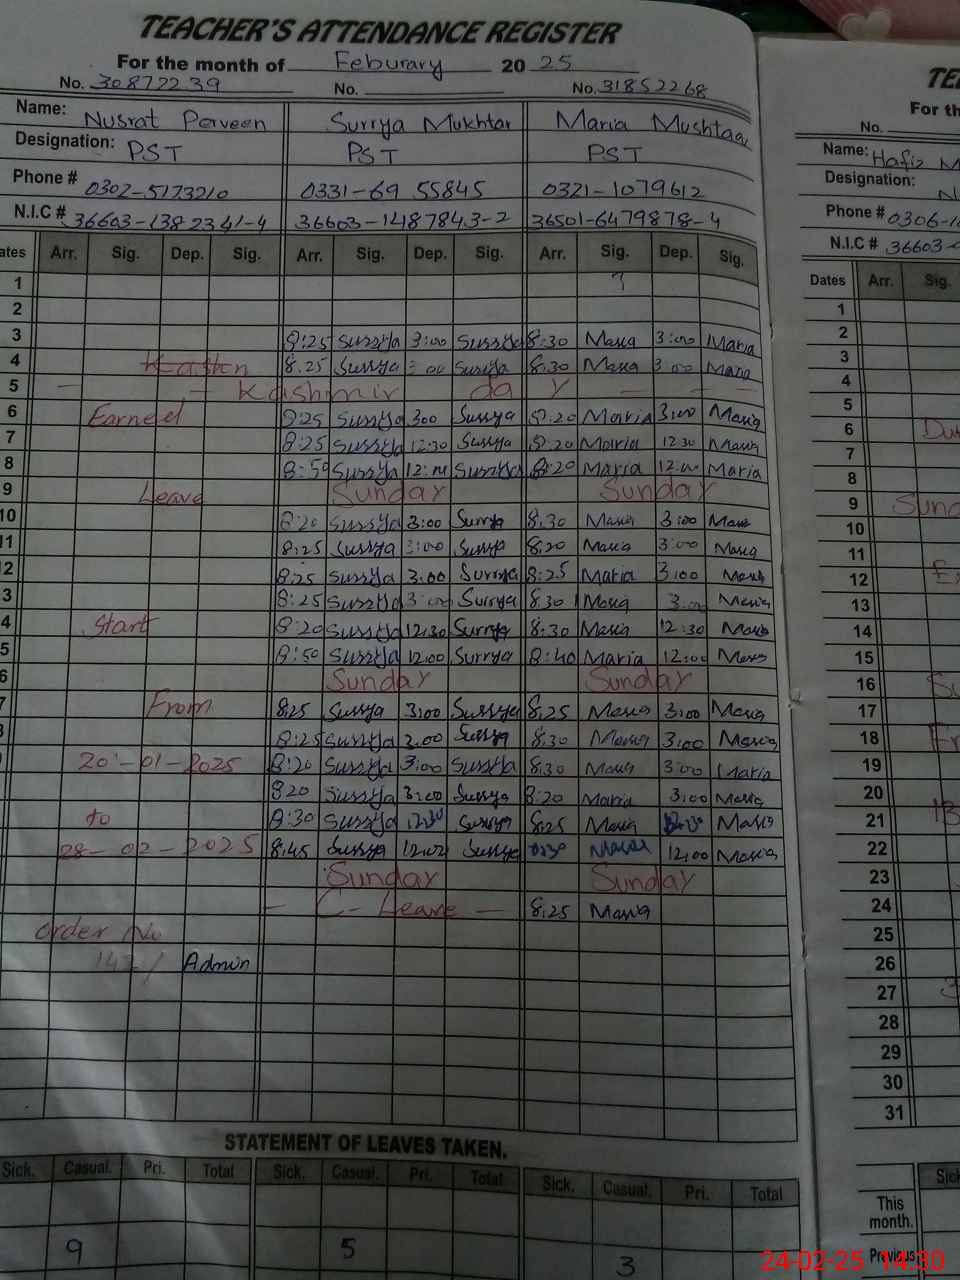 TEACHER'S ATTENDANCE REGISTER
For the month of Feburary 20 25
No. 30872239 No. No. 31852268
Name: Nusrat Perveen Surrya Mukhtar Maria Mushtaq
Designation: PST PST PST
Phone # 0302-5173210 0331-69 55845 0321-1079612
N.I.C # 36603-1382341-4 36603-1487843-2 36501-6479878-4
ates Arr. Sig. Dep. Sig. Arr. Sig. Dep. Sig. Arr. Sig. Dep. Sig.
1
2
3 8:25 Surrya 3:00 Surrya 8:30 Maria 3:00 Maria
4 8.25 Surrya 3:00 Surrya 8.30 Maria 3:00 Maria
5 - - Kashmir da y - - -
6 Earned 8:25 Surrya 300 Surrya 8:20 Maria 3:00 Maria
7 8:25 Surrya 12:30 Surrya 8:20 Maria 12 30 Maria
8 8:50 Surrya 12:00 Surrya 8:20 Maria 12:00 Maria
9 Leave Sunday Sunday
10 8:20 Surrya 3:00 Surrya 8.30 Maria 3:00 Maria
11 8:25 Surrya 3:00 Surrya 8:20 Maria 3:00 Maria
12 8:25 Surrya 3.00 Surrya 8:25 Maria 3:00 Maria
3 8:25 Surrya 3:00 Surrya 8.30 Maria 3:00 Maria
4 Start 8:20 Surrya 12.30 Surrya 8:30 Maria 12:30 Maria
5 8:50 Surrya 12:00 Surrya 8:40 Maria 12:00 Maria
6 Sunday Sunday
7 From 8:25 Surrya 3:00 Surrya 8.25 Maria 3:00 Maria
8:25 Surrya 3.00 Surrya 8:30 Maria 3:00 Maria
20-01-2025 8:20 Surrya 3:00 Surrya 8:30 Maria 3:00 Maria
8:20 Surrya 3:00 Surrya 8:20 Maria 3:00 Maria
to 8:30 Surrya 12:30 Surrya 8:25 Maria 12:30 Maria
28-02-2025 8:45 Surrya 12:02 Surrya 8:30 Maria 12:00 Maria
Sunday Sunday
- C- Leave - 8:25 Maria
order No
142/ Admin
STATEMENT OF LEAVES TAKEN.
Sick. Casual. Pri. Total Sick. Casual. Pri. Total Sick. Casual. Pri. Total
9 5 3
For th
No.
Name: Hafiz M
Designation:
Phone # 0306-1
N.I.C # 36603-
Dates Arr. Sig.
1
2
3
4
5
6
7
8
9 Sund
10
11
12
13
14
15
16 Su
17
18 Fr
19
20
21
22
23
24
25
26
27 3
28
29
30
31
Sick
This
month.
Previous
24-02-25 14:30